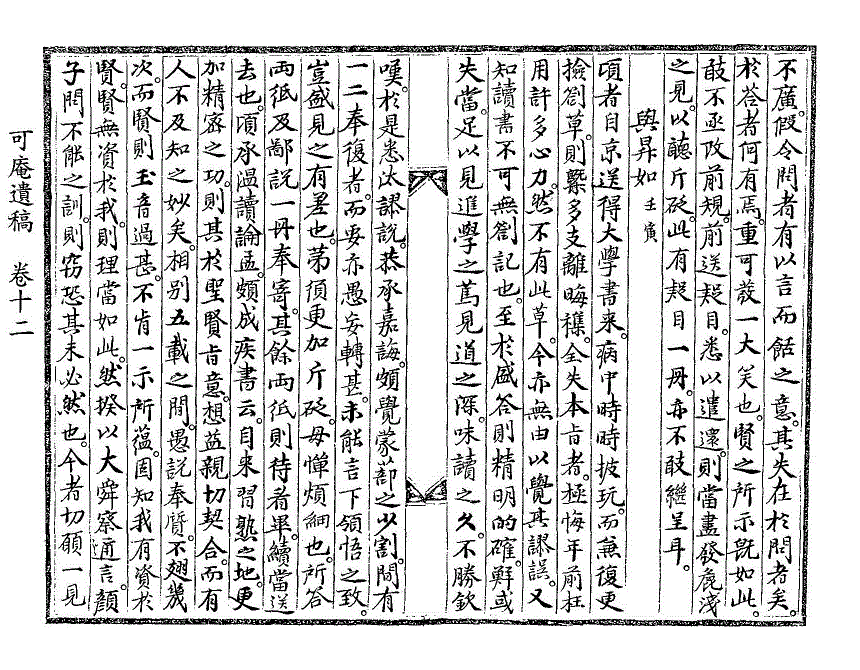 不廣。假令問者有以言而餂之意。其失在於問者矣。
於答者何有焉。重可發一大笑也。賢之所示旣如此。
敢不亟改前規。前送疑目。悉以遣還。則當盡發庬淺
之見。以聽斤砭。此有疑目一冊。亦不敢繼呈耳。
與昇如 壬寅
頃者自京送得大學書來。病中時時披玩。而兼復更
撿劄草。則槩多支離晦穢。全失本旨者。極悔年前枉
用許多心力。然不有此草。今亦無由以覺其謬誤。又
知讀書不可無劄記也。至於盛答則精明的確。鮮或
失當。足以見進學之篤見道之深。味讀之久。不勝欽
嘆。於是悉汰謬說。恭承嘉誨。頗覺蒙蔀之少割。間有
一二奉復者。而妄亦愚妄轉甚。未能言下領悟之致。
豈盛見之有差也。第須更加斤砭。毋憚煩細也。所答
兩紙及鄙說一冊奉寄。其餘兩紙則待看畢。續當送
去也。頃承溫讀論孟。頗成疾書云。自來習熟之地。更
加精密之功。則其於聖賢旨意。想益親切契合。而有
人不及知之妙矣。相別五載之間。愚說奉質。不翅幾
次。而賢則玉音過甚。不肯一示所蘊。固知我有資於
賢。賢無資於我。則理當如此。然揆以大舜察邇言。顔
子問不能之訓。則竊恐其未必然也。今者切願一見
可庵遺稿 卷十二